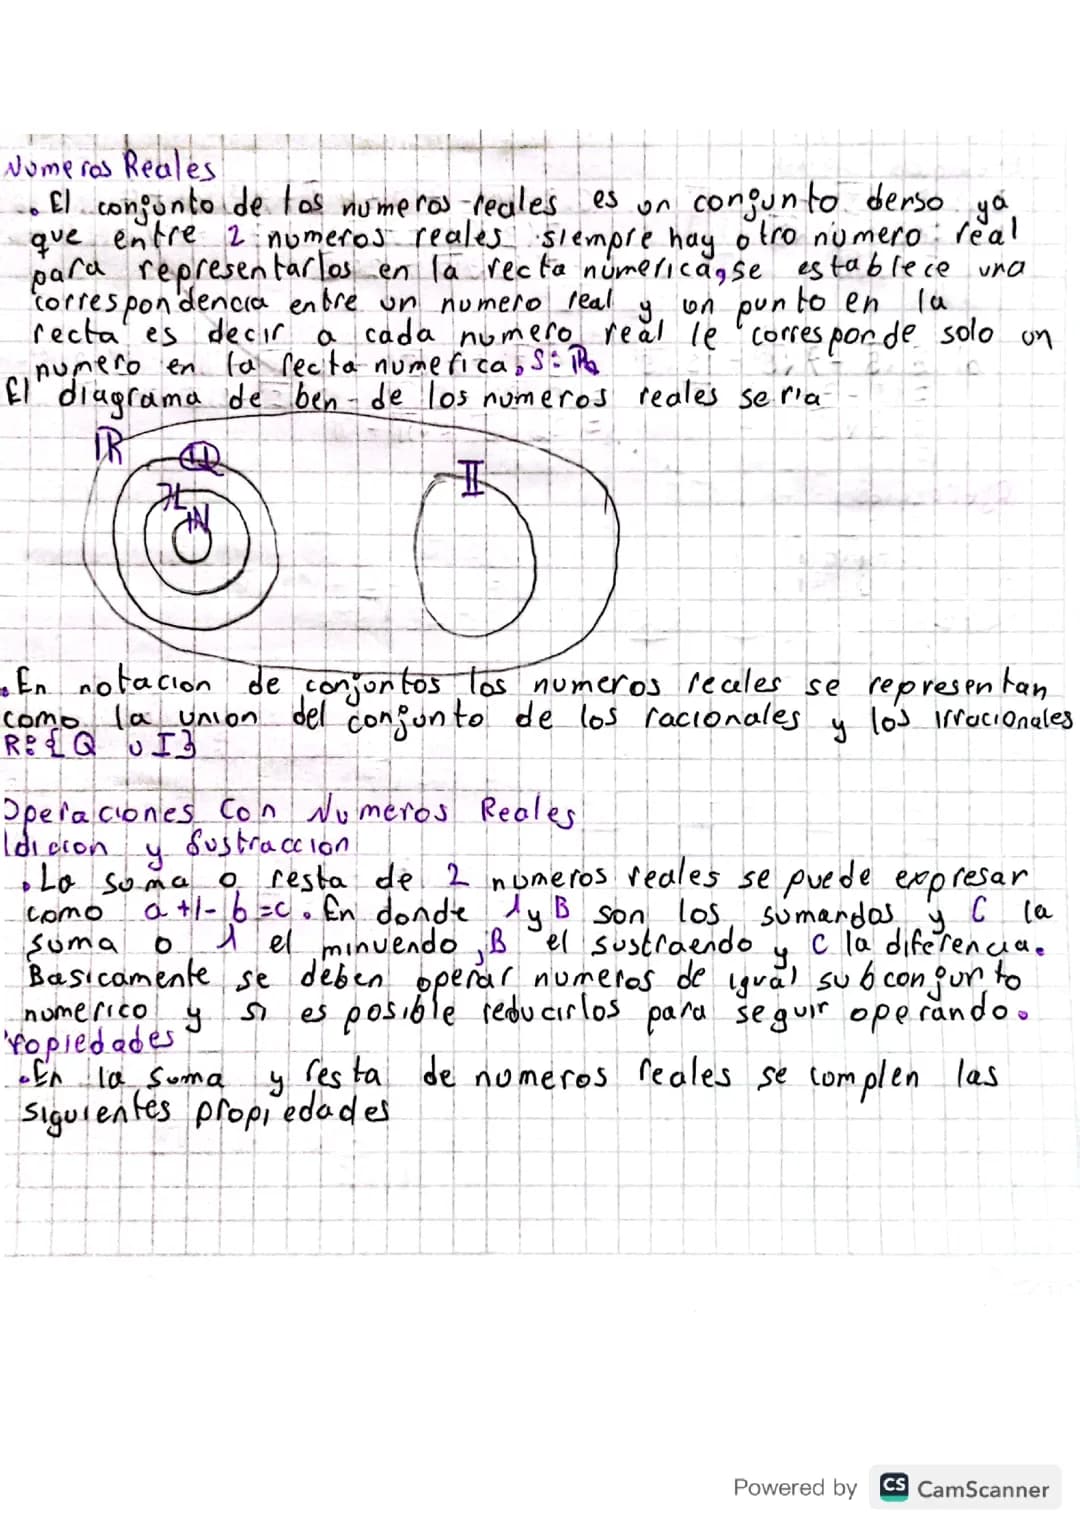 Numeros Reales
. El conjunto de los numeros reales es un conjunto denso ya
que entre 2 numeros reales siempre hay otro numero real
para representarlos en la recta numerica, se establece una
correspondencia entre un numero real y un punto en la
recta es decir a cada numero real le corresponde solo un
numero en la recta numerica, S:
El diagrama de ben de los numeros reales seria
R
Q
Z
N
II
. En notacion de conjuntos los numeros reales se representan
como la union del conjunto de los racionales y los irracionales
R:{Q U I}
Operaciones Con Numeros Reales
Adicion y Sustraccion
. La suma o resta de 2 numeros reales se puede expresar
como a +/- b =c. En donde A y B son los sumandos y C la
suma o A el minuendo, B el sustraendo y C la diferencia.
Basicamente se deben operar numeros de igual subconjunto
numerico y si es posible reducirlos para seguir operando.
Propiedades
. En la suma y resta de numeros reales se complen las
siguientes propiedades
Powered by CS CamScanner